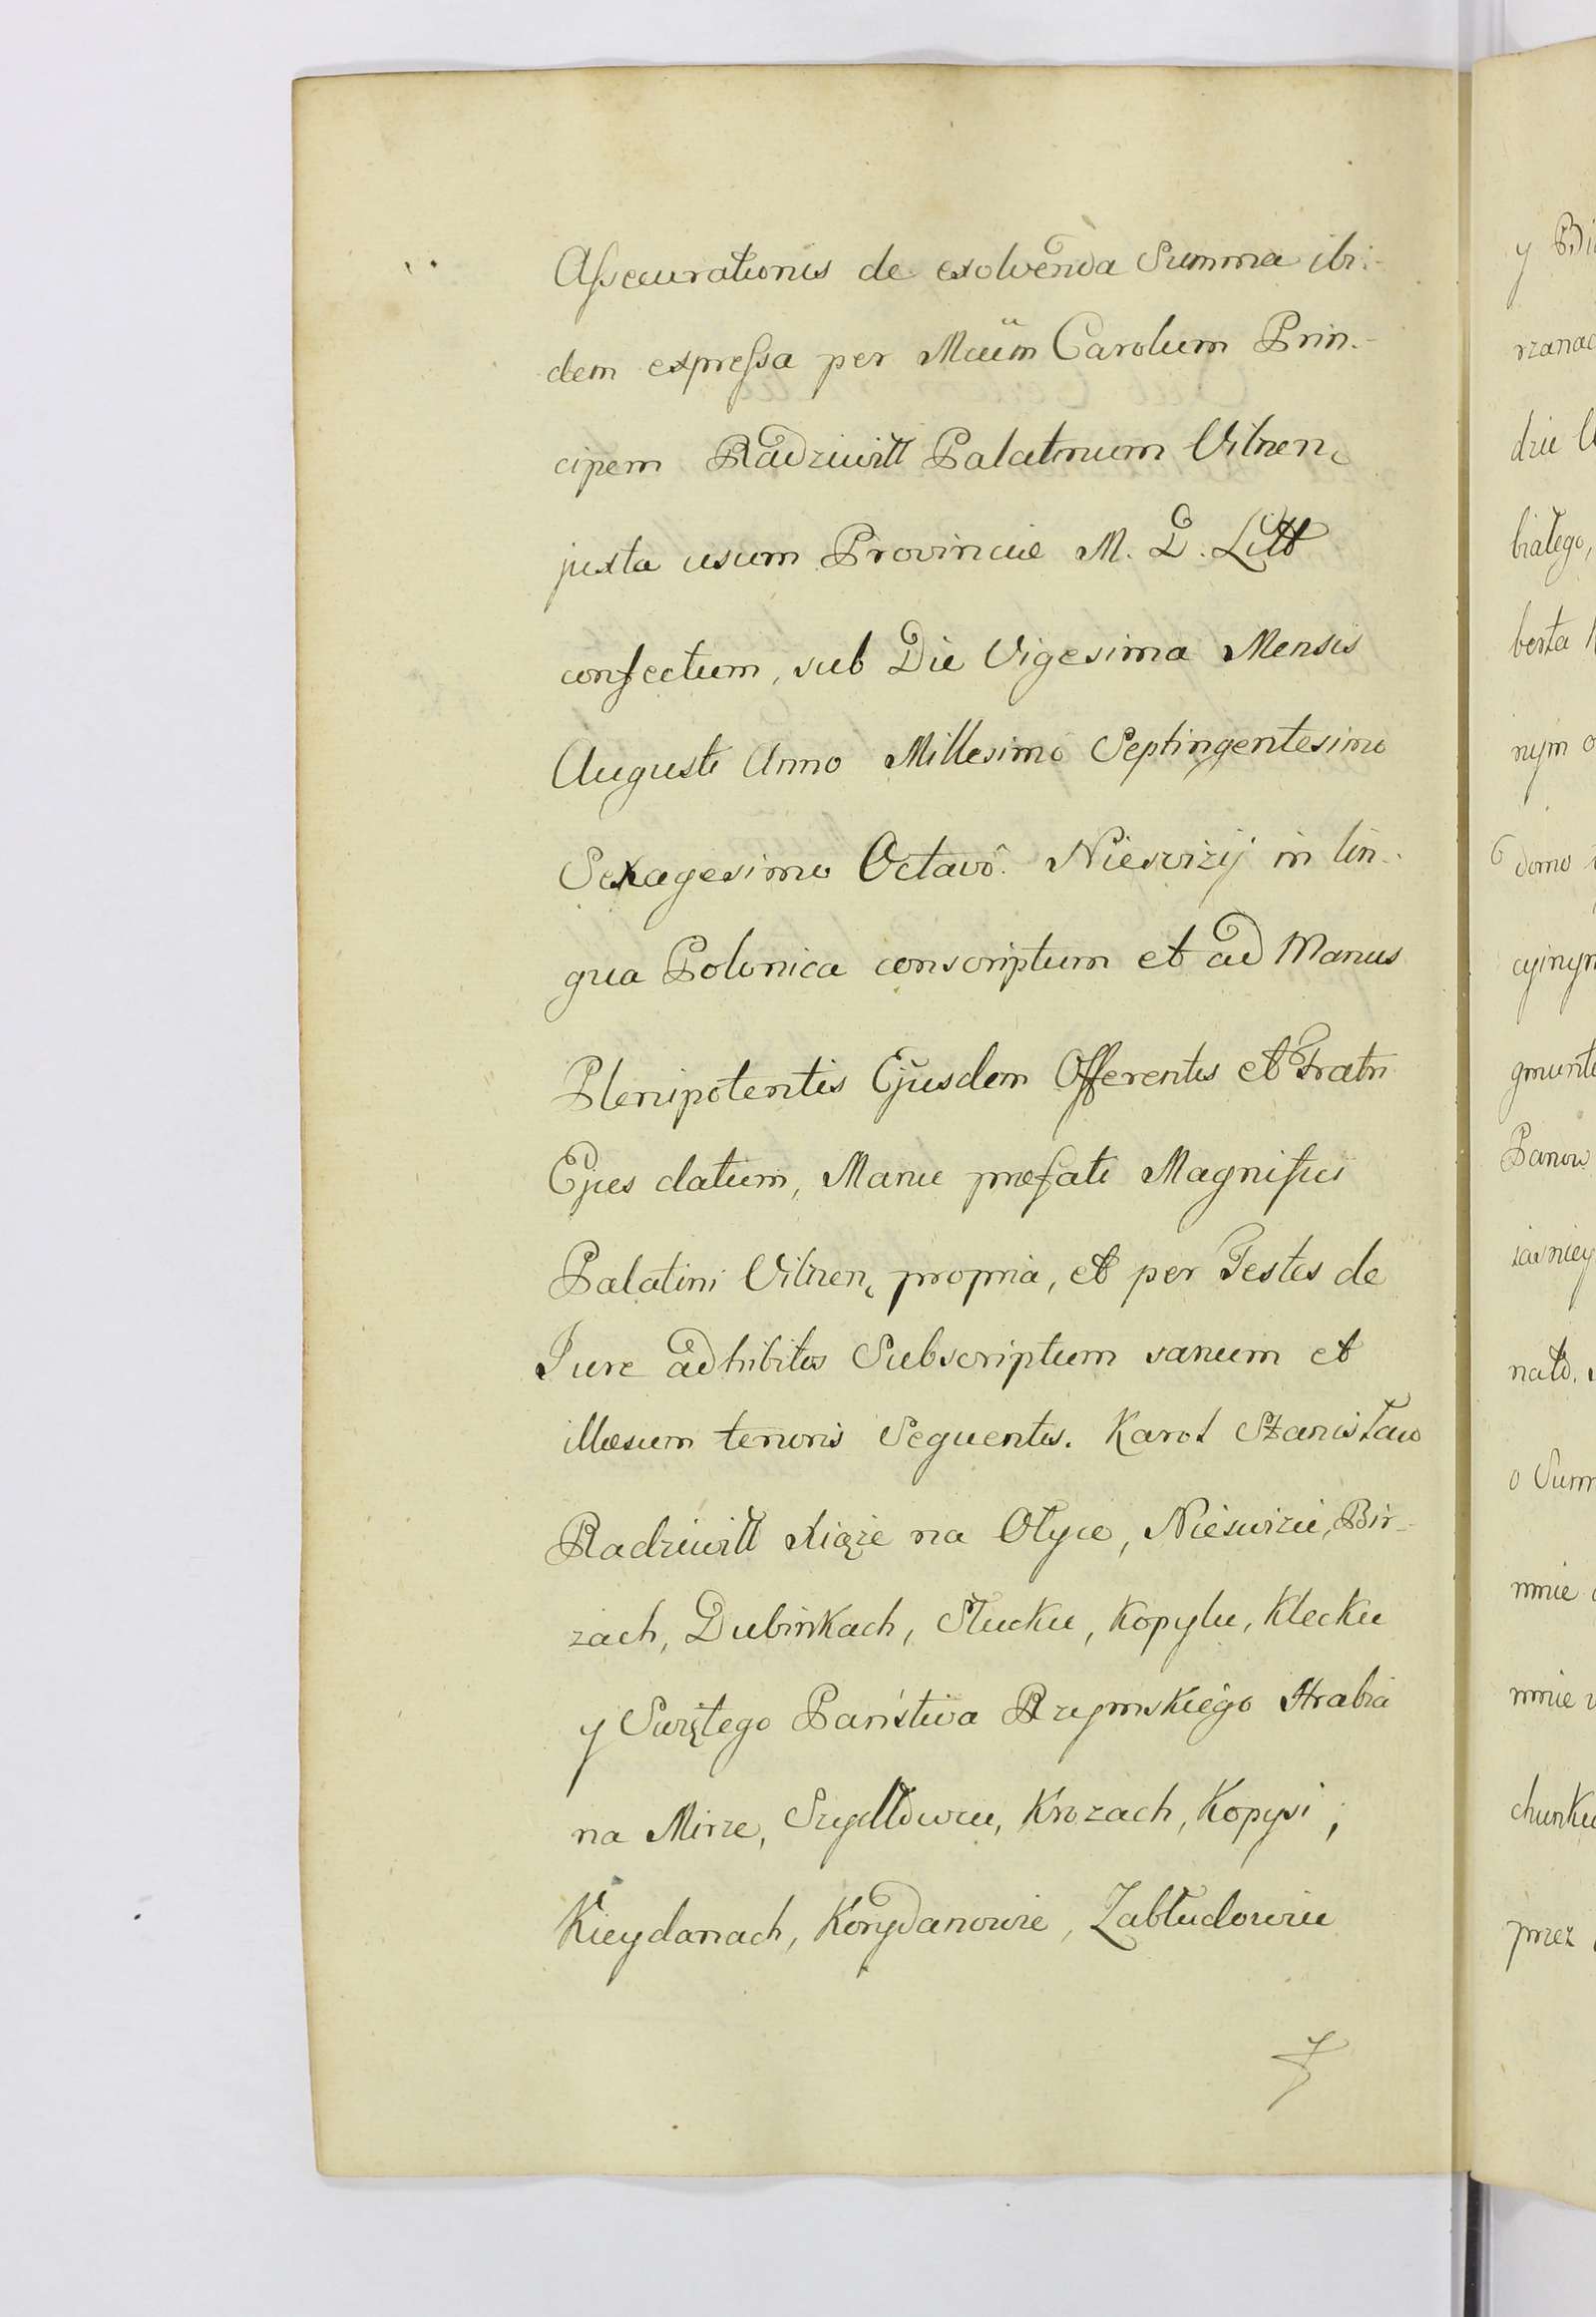 Assecurationis de exolvenda Summa ibi-
dem expressa per Mcum Carolum Prin-
cipem Radziwiłł Palatinum Vilnen,
juxta usum Provinciæ M. D. Litt
confectum, sub Die Vigesima Mensis
Augusti Anno Millesimo Septingentesimo
Sexagesimo Octavo. Nieswizij in lin-
gua Polonica conscriptum et ad Manus
Plenipotentis Ejusdem Offerentis et Fratri
Ejus datum, Manu præfati Magnifici
Palatini Vilnen, propria, et per Testes de
Jure adhibitos Subscriptum sanum et
illæsum tenoris Sequentis. Karol Stanisław
Radziwiłł Xiąże na Ołyce, Nieświżu, Bir-
żach, Dubinkach, Słucku, Kopylu, Klecku
y Swiętego Państwa Rzymskiego Hrabia
na Mirze, Szydłowcu, Krozach, Kopysi,
Kieydanach, Koydanowie, Zabłudowiu
y
rzanac
dzie
białego,
berta
nym
domo
cyinym
gmunta
Panow
iasniey
o Summ
mnie
mnie
chunku
przez